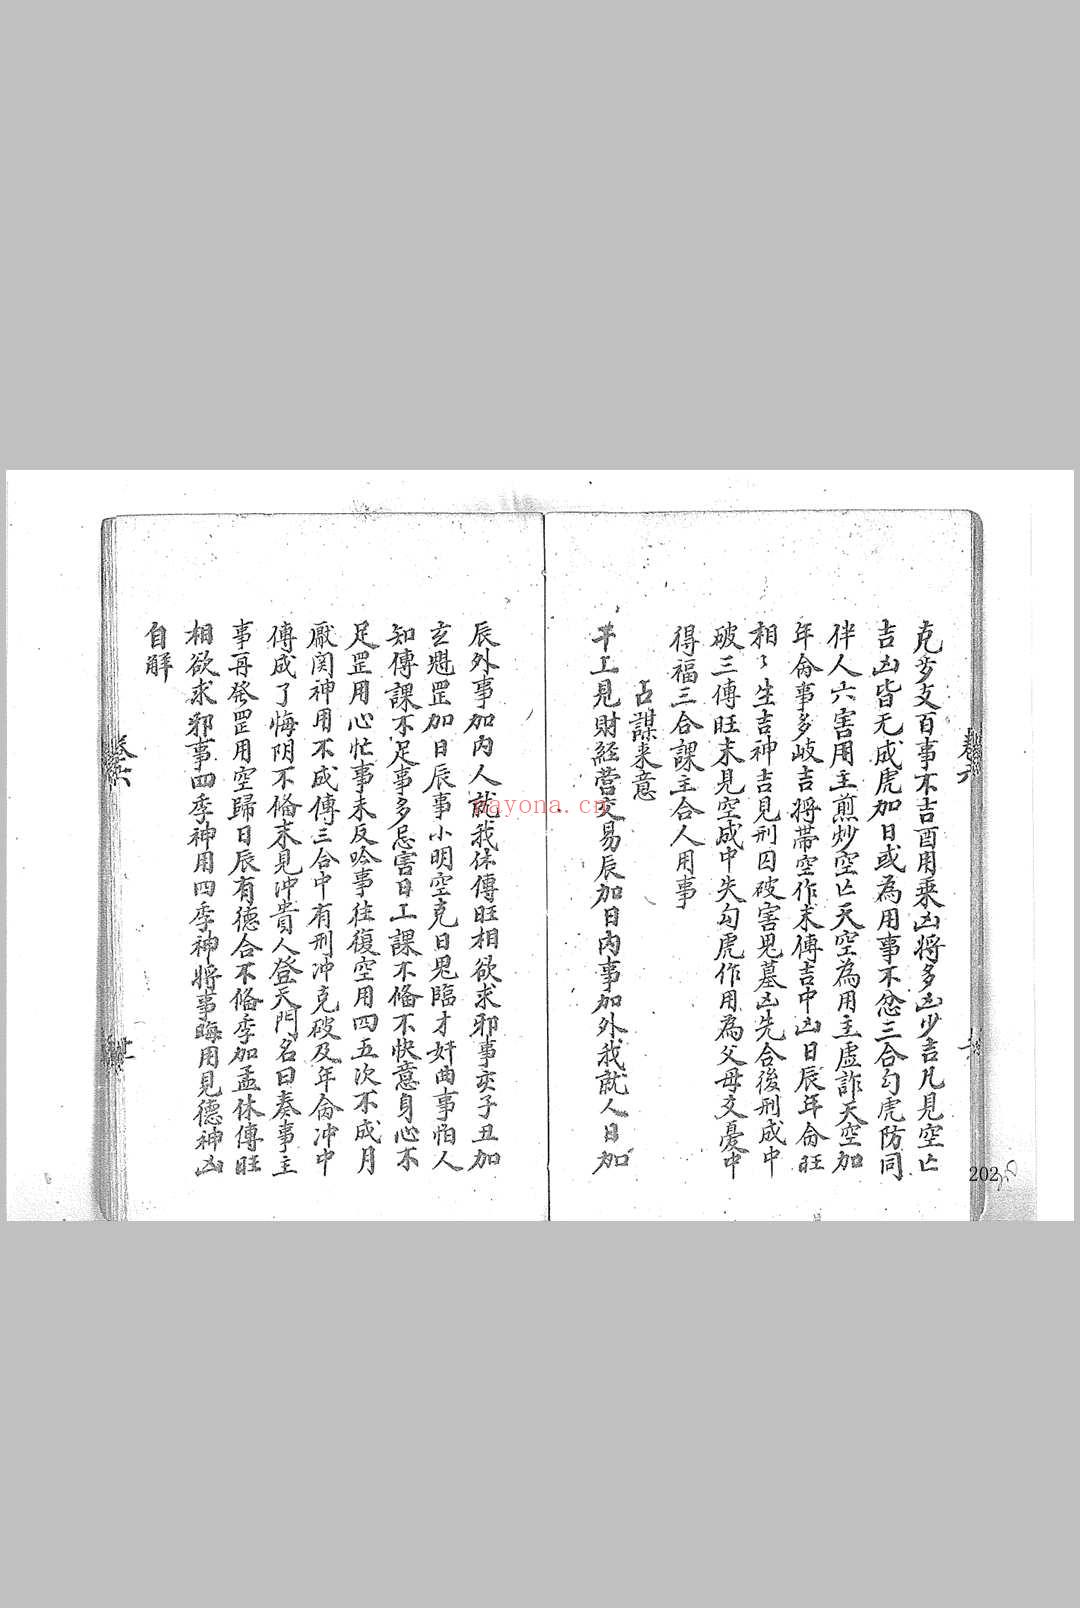 克歩支百事不吉酉用乘凶將多凶少吉凡見空亡
吉凶皆无成虎加日或為用事不忿三合勾虎防同
伴人六害用主煎炒空亡天空為用主虛詐天空加
年命事多岐吉將帶空作末傳吉中凶日辰年命旺
相〻生吉神吉見刑囚破害鬼墓凶先合後刑成中
破三傳旺末見空成中失勾虎作用為父母文憂中
得福三合課主合人用事
占謀来意
干上見財經營交易辰加日內事加外我就人日加
辰外事加內人就我休傳旺相欲求邪事亥子丑加
玄魁罡加日辰事小明空克日鬼臨才奸曲事怕人
知傳課不足事多忌害日上課不俻不快意身心不
足罡用心忙事未反吟事往復空用四五次不成月
厭関神用不成傳三合中有刑冲克破及年命冲中
傳成了悔阴不俻末見冲貴人登天門名曰奏事主
事再發罡用空歸日辰有德合不俻季加孟休傳旺
相欲求邪事四季神用四季神將事晦用見德神凶
自解
卷六
卷六
202
nayona.cn